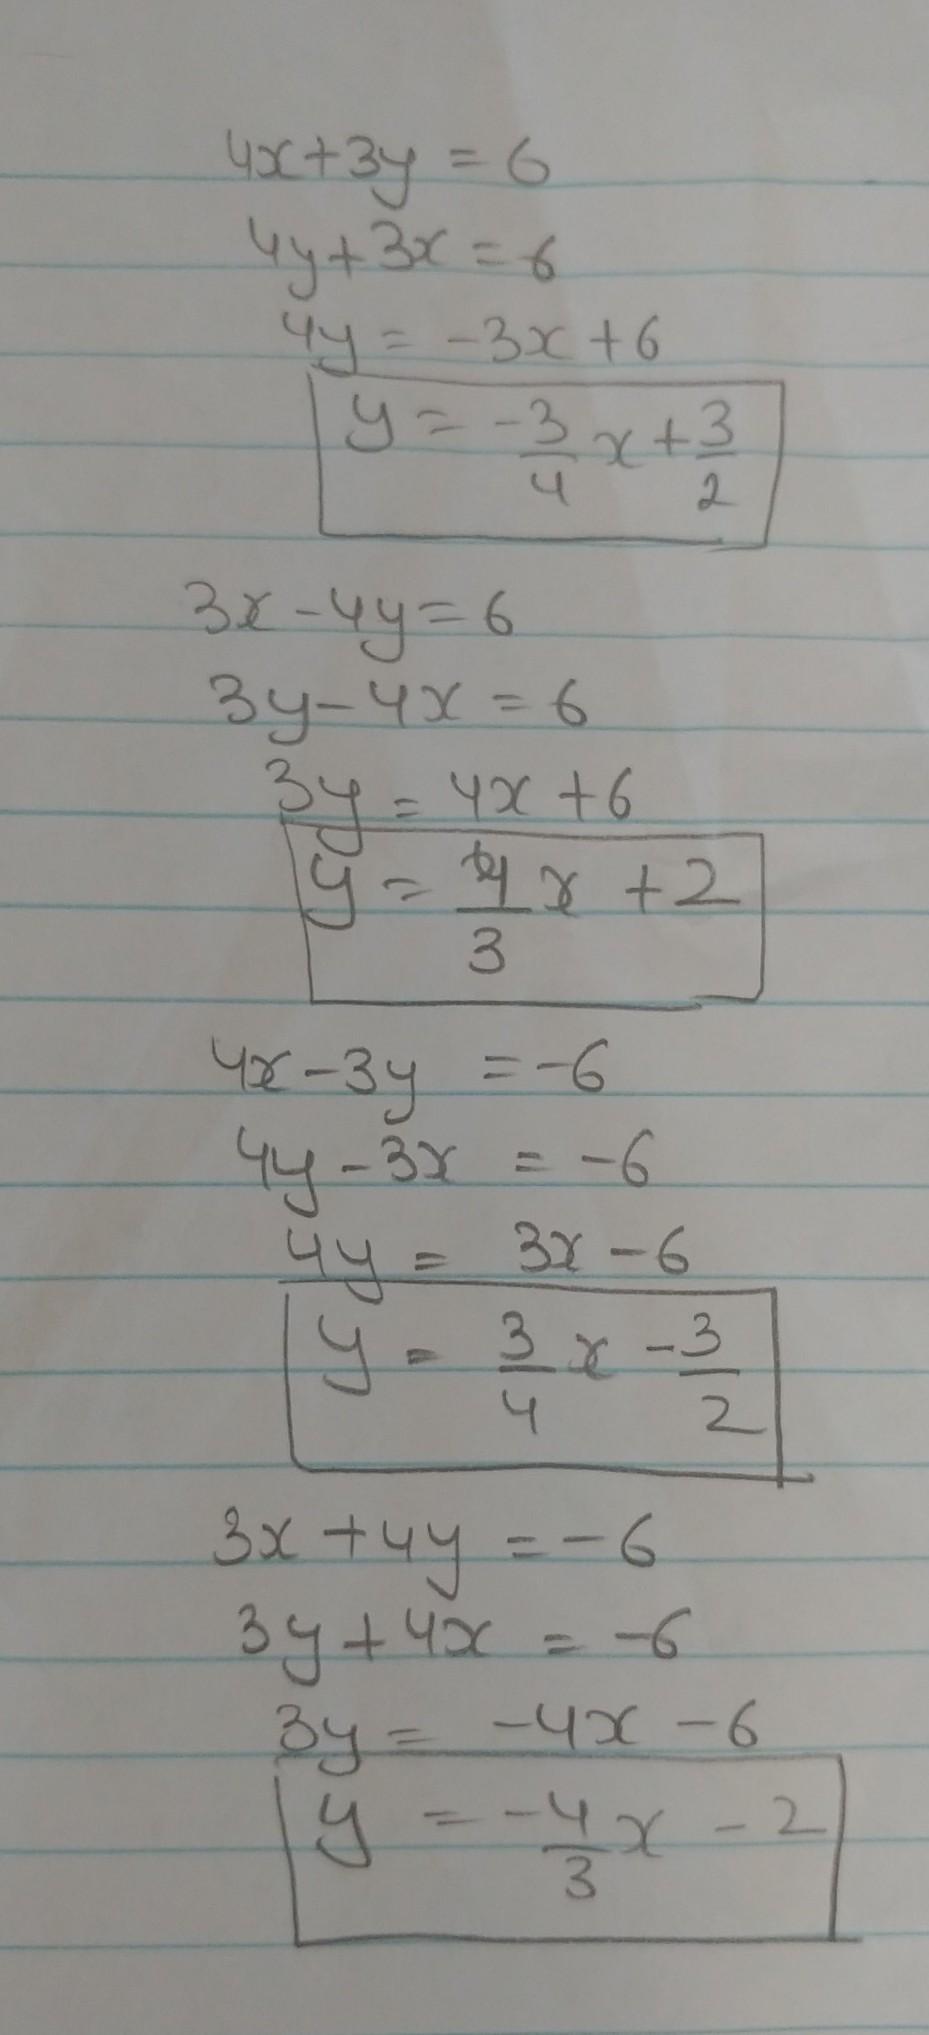 4x+3y = 6
4y+3x = 6
4y = -3x + 6
y = -3/4 x + 3/2
3x - 4y = 6
3y - 4x = 6
3y = 4x + 6
y = 4/3 x + 2
4x - 3y = -6
4y - 3x = -6
4y = 3x - 6
y = 3/4 x - 3/2
3x + 4y = -6
3y + 4x = -6
3y = -4x - 6
y = -4/3 x - 2